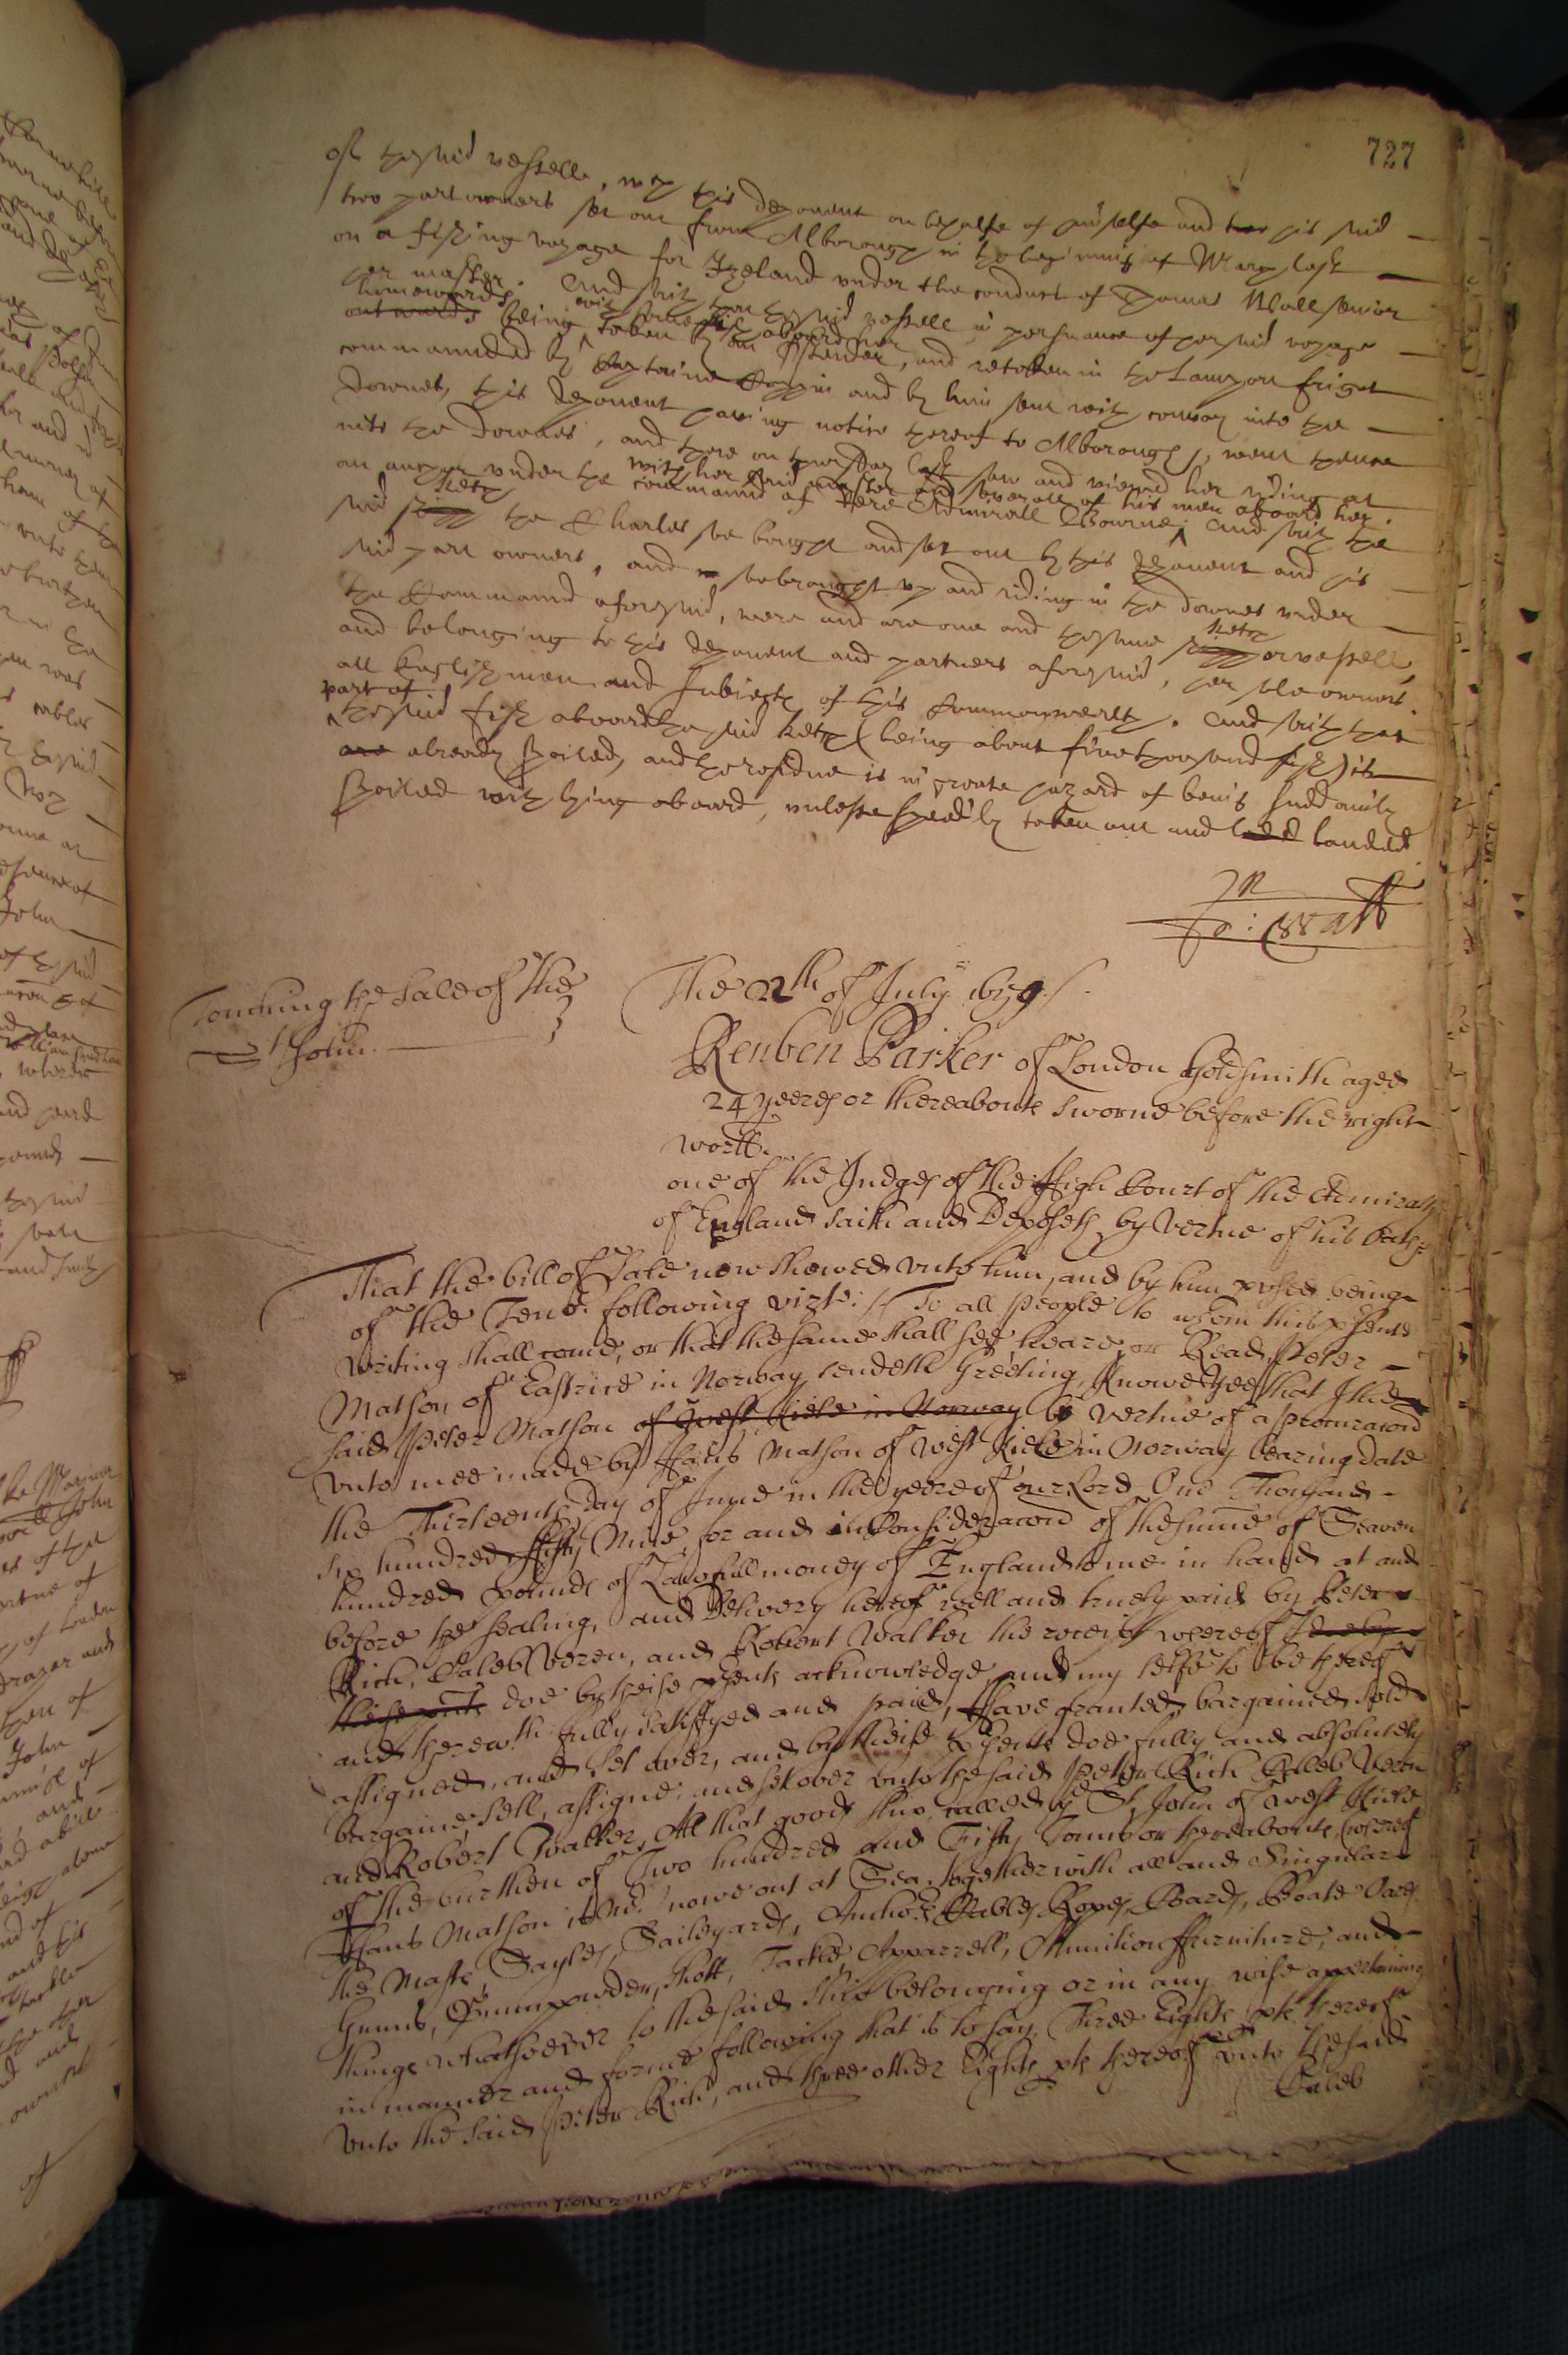 727
of the said vessell, with this deponent on behalfe of himselfe and his said
two partowners set out from Alborough in the beginning of March last
on a fishing voyage for Izeland under the conduct of Thomas Wall senior
her master. And saith that the said vessell in pursuance of her said voyage
homewards with some fish aboard her
outwards being taken by an Ostender, and retaken in the Lampson frigot
commannded by Captaine Coppin and by him sent with convoy into the
Downes, this deponent having notice thereof to Alborough, went thence
into the Downes, and there on thursday last saw and viewed her riding at
with her said master and severall of his men aboord her.
an anchor under the commannd of Vere Admirall Bourne, And saith the
ketch
said shipp the Charles soe bought and set out by this deponent and his
said part owners, and soe brought up and riding in the Downes under
the Commannd aforesaid, were and are one and the same
ketch
shipp or vessell,
and belonging to this deponent and partners aforesaid, her sole owners,
all Englishmen and subjects of this Commonwealth. And saith that
part of
the said fish aboord the said ketch (being about five thousand fish) is
are already spoiled, and the residue is in greate hazard of being suddainly
spoiled with lying aboard, unlesse speedily taken out and landed
Wall
Touching the Sale of the
St John.
The 22th of July 1659.
Reuben Parker of London Goldsmith aged
24 yeeres or thereabouts sworne before the right
worll.
one of the Judges of the High Court of the Admiralty
of England saith and Deposeth by vertue of his Oath.
That the bill of Sale now showed unto him, and by him being
of the Tenor following vizt: To all people to whom this psents
writing shall come, or that the same shall see, heare, or Read, Peter
Matson of Eastrice in Norway sendeth Greeting, Knowe yee that I the
said Peter Matson of West Rice in Norway by vertue of a procuracon
unto mee made by Hans Matson of West Rice in Norway bearing date
the Thirteenth day of June in the yeere of our Lord One Thousand
six hundred fifty Nine, for and in Consideracon of the summe of Seaven
hundred pounds of Lawfull money of England to me in hand at and
before the sealing, and Delivery hereof well and truely paid by Peter
Rich, Caleb Veren, and Robert Walker the receipt whereof I doe by
these psents doe by theise psents acknowledge, and my selfe to be thereof
and therewth fully satisfyed and paid, Have granted, bargained, sold
assigned, and set over, and by theise psents doe fully and absolutely
bargaine, sell, assigne, and set over unto the said Peter Rich Caleb Veren
and Robert Walker, All that good ship called ye St John of West Rice
of the burthen of Two hundred and Fifty Tonns or thereabouts, (whereof
Hans Matson is Mr. nowe out at Sea, together with all and Singular
the Masts, Sayles, Saileyards, Anchors, Cables, Ropes, Coards, Boate Oares
Gunns, Gunnpowder, Shott, Tackle, Apparrell, Munition furniture, and
things whatsoever to the said ship belonging or in any wise appertaining
in manner and forme following that is to say, Three Eights pts thereof
unto the said Peter Rich, and three other Eights pts thereof unto the said
Caleb